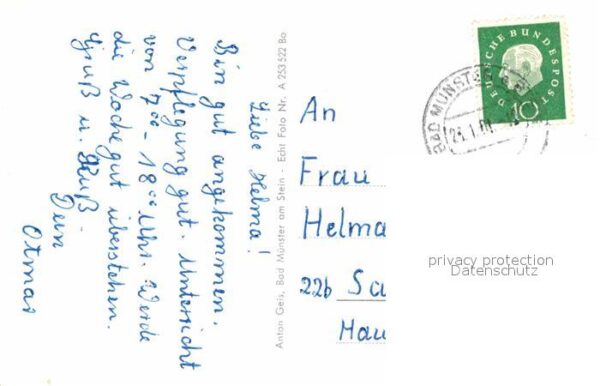 Liebe Helma!
Bin gut angekommen.
Verpflegung gut. Unterricht
von 7⁰⁰ - 18⁰⁰ Uhr. Werde
die Woche gut überstehen.
Gruß u. Kuß.
Dein
Otmar
Anton Geis, Bad Münster am Stein - Echt Foto Nr. A 253 522 Bo
DEUTSCHE BUNDESPOST
10
BAD MÜNSTER
An
Frau
Helma
22b Sa
Hau
privacy protection
Datenschutz